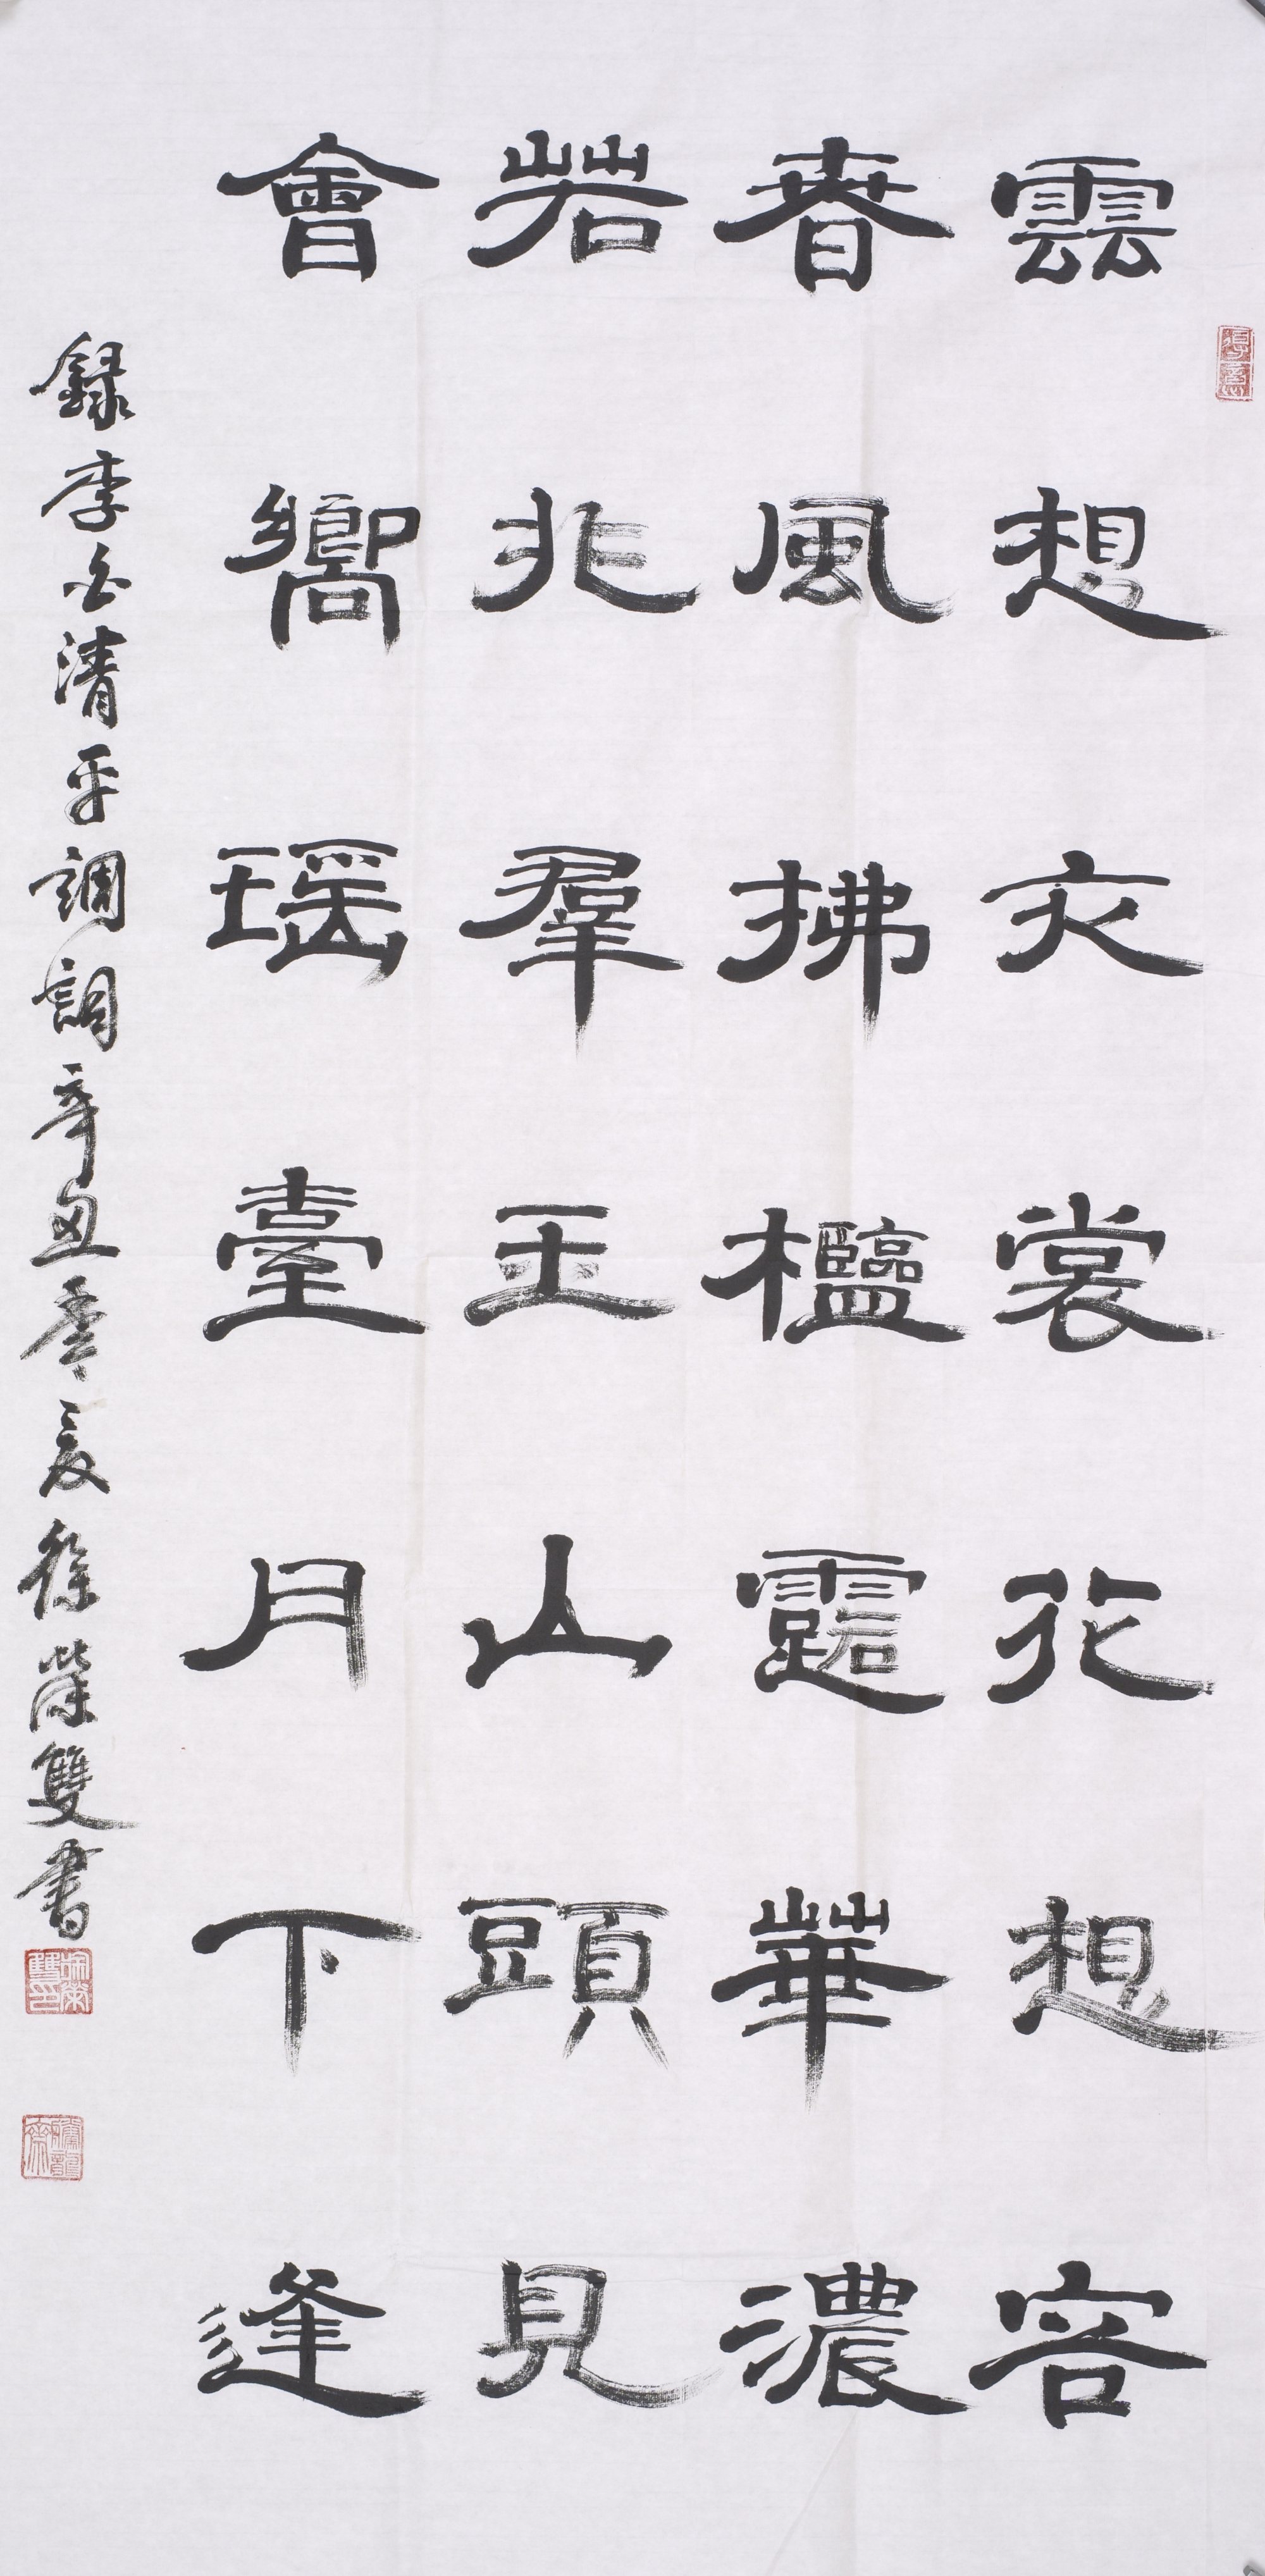 雲想衣裳花想容
春風拂檻露華濃
若非羣玉山頭見
會嚮瑶臺月下逢
録李白清平調詞辛丑季夏徐榮雙書
得意
徐榮雙印